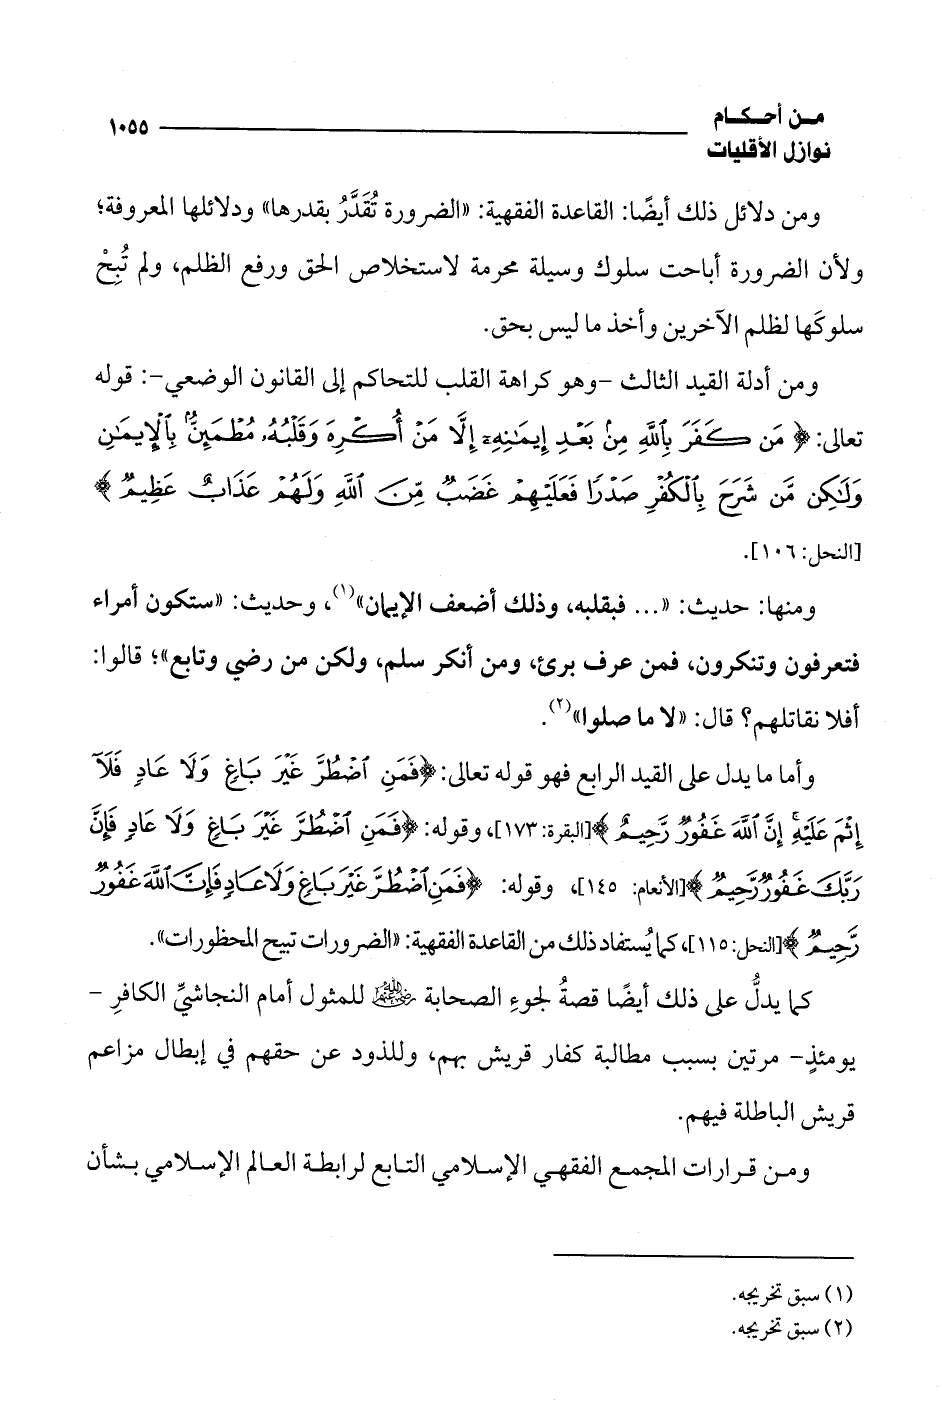 من أحكام
نوازل الأقليات
١٠٥٥
ومن دلائل ذلك أيضًا: القاعدة الفقهية: «الضرورة تُقَدَّرُ بقدرها» ودلائلها المعروفة؛
ولأن الضرورة أباحت سلوك وسيلة محرمة لاستخلاص الحق ورفع الظلم، ولم تُبِحْ
سلوكَها لظلم الآخرين وأخذ ما ليس بحق.
ومن أدلة القيد الثالث -وهو كراهة القلب للتحاكم إلى القانون الوضعي-: قوله
تعالى: ﴿مَن كَفَرَ بِٱللَّهِ مِنۢ بَعْدِ إِيمَٰنِهِۦٓ إِلَّا مَنْ أُكْرِهَ وَقَلْبُهُۥ مُطْمَئِنٌّۢ بِٱلْإِيمَٰنِ
وَلَٰكِن مَّن شَرَحَ بِٱلْكُفْرِ صَدْرًا فَعَلَيْهِمْ غَضَبٌ مِّنَ ٱللَّهِ وَلَهُمْ عَذَابٌ عَظِيمٌ﴾
[النحل: ١٠٦].
ومنها: حديث: «... فبقلبه، وذلك أضعف الإيمان»(١)، وحديث: «ستكون أمراء
فتعرفون وتنكرون، فمن عرف برئ، ومن أنكر سلم، ولكن من رضي وتابع»؛ قالوا:
أفلا نقاتلهم؟ قال: «لا ما صلوا»(٢).
وأما ما يدل على القيد الرابع فهو قوله تعالى: ﴿فَمَنِ ٱضْطُرَّ غَيْرَ بَاغٍ وَلَا عَادٍ فَلَآ
إِثْمَ عَلَيْهِ ۚ إِنَّ ٱللَّهَ غَفُورٌ رَّحِيمٌ﴾[البقرة: ١٧٣]، وقوله: ﴿فَمَنِ ٱضْطُرَّ غَيْرَ بَاغٍ وَلَا عَادٍ فَإِنَّ
رَبَّكَ غَفُورٌ رَّحِيمٌ﴾[الأنعام: ١٤٥]، وقوله: ﴿فَمَنِ ٱضْطُرَّ غَيْرَ بَاغٍ وَلَا عَادٍ فَإِنَّ ٱللَّهَ غَفُورٌ
رَّحِيمٌ﴾[النحل: ١١٥]، كما يُستفاد ذلك من القاعدة الفقهية: «الضرورات تبيح المحظورات».
كما يدلُّ على ذلك أيضًا قصةُ لجوءِ الصحابة رضي الله عنهم للمثول أمام النجاشيِّ الكافرِ -
يومئذٍ- مرتين بسبب مطالبة كفار قريش بهم، وللذود عن حقهم في إبطال مزاعم
قريش الباطلة فيهم.
ومن قرارات المجمع الفقهي الإسلامي التابع لرابطة العالم الإسلامي بشأن
(١) سبق تخريجه.
(٢) سبق تخريجه.